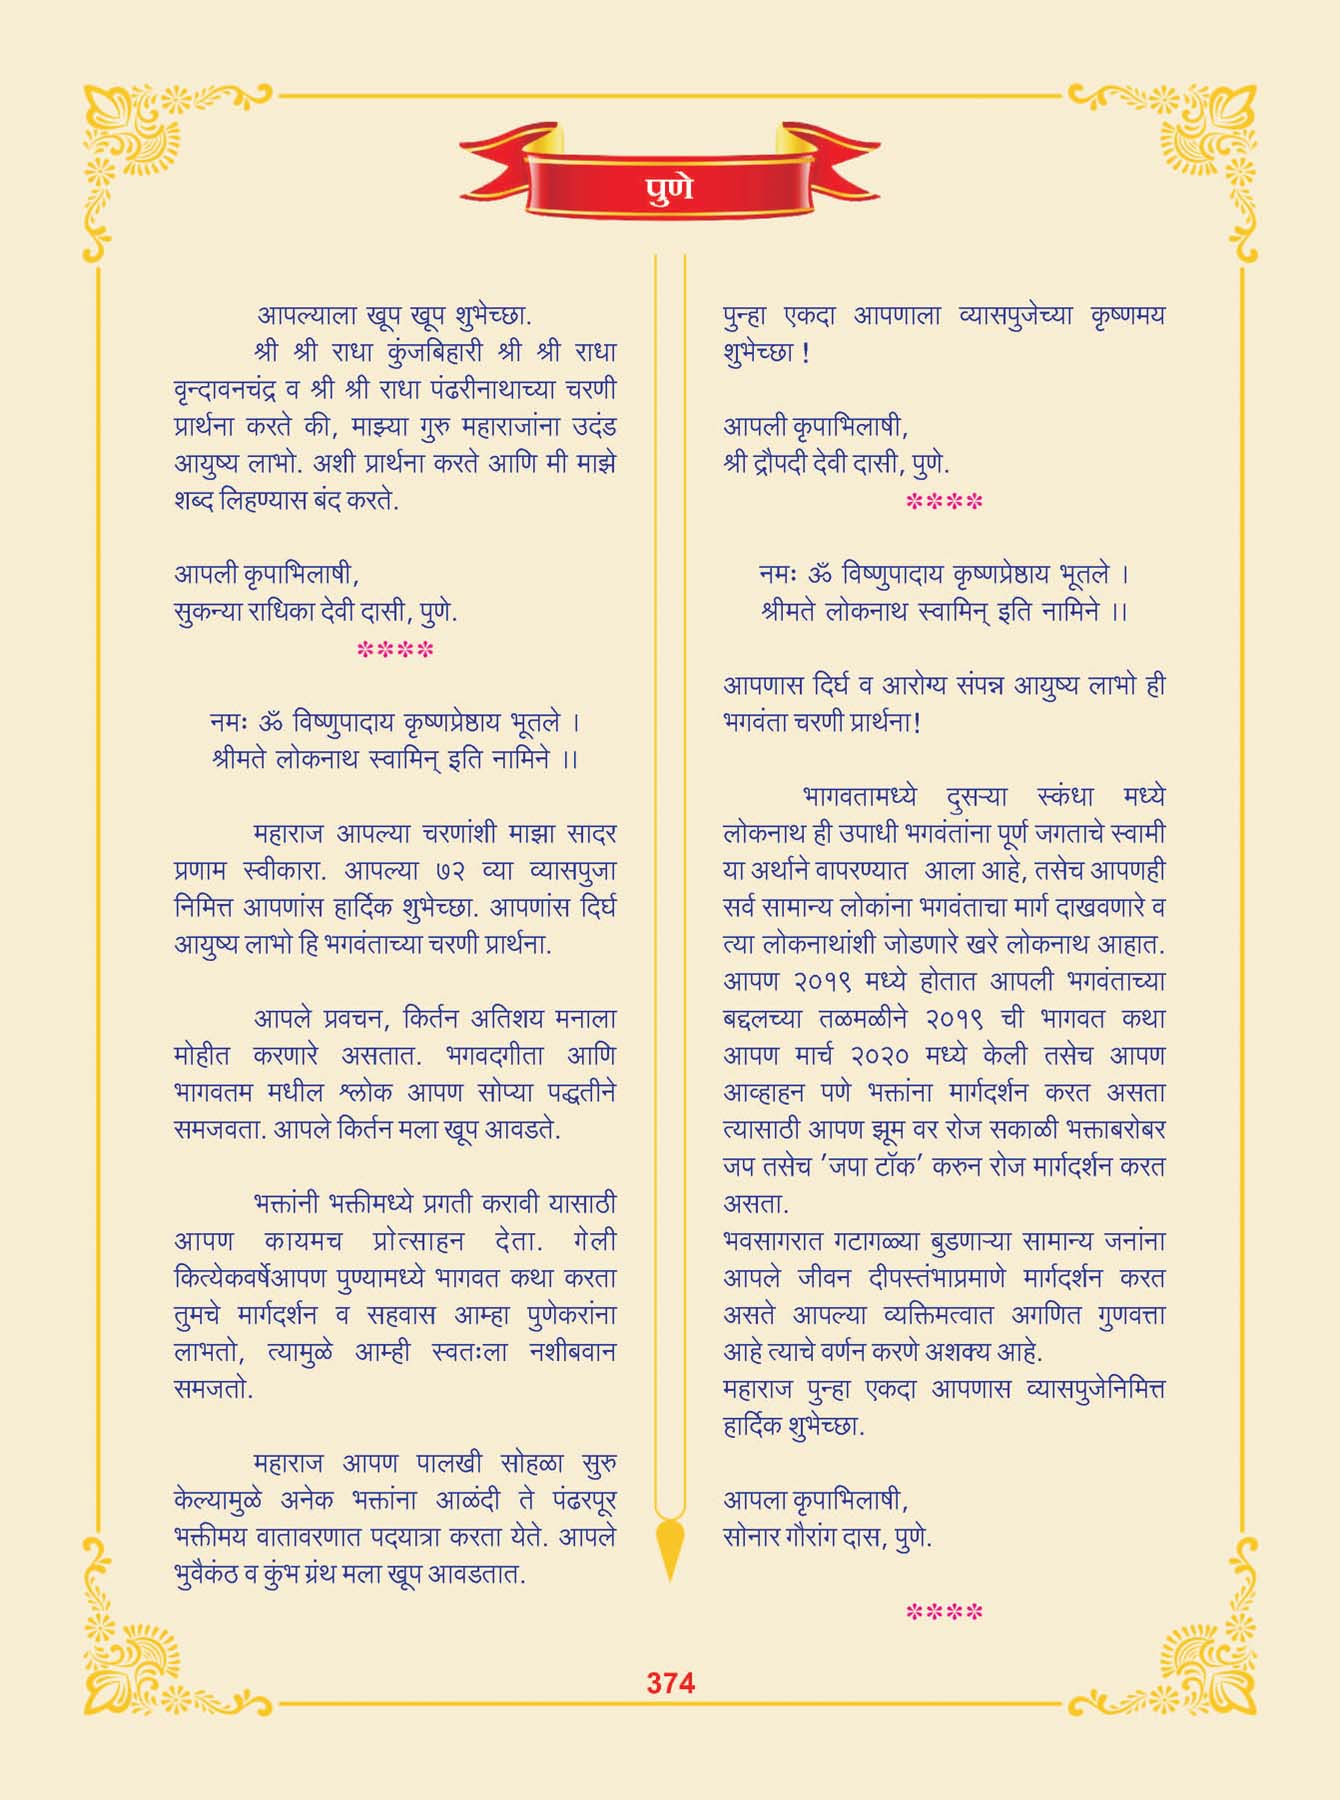 पुणे
आपल्याला खूप खूप शुभेच्छा.
श्री श्री राधा कुंजबिहारी श्री श्री राधा
वृन्दावनचंद्र व श्री श्री राधा पंढरीनाथाच्या चरणी
प्रार्थना करते की, माझ्या गुरु महाराजांना उदंड
आयुष्य लाभो. अशी प्रार्थना करते आणि मी माझे
शब्द लिहण्यास बंद करते.
आपली कृपाभिलाषी,
सुकन्या राधिका देवी दासी, पुणे.
****
नमः ॐ विष्णुपादाय कृष्णप्रेष्ठाय भूतले ।
श्रीमते लोकनाथ स्वामिन् इति नामिने ।।
महाराज आपल्या चरणांशी माझा सादर
प्रणाम स्वीकारा. आपल्या ७२ व्या व्यासपुजा
निमित्त आपणांस हार्दिक शुभेच्छा. आपणांस दिर्घ
आयुष्य लाभो हि भगवंताच्या चरणी प्रार्थना.
आपले प्रवचन, किर्तन अतिशय मनाला
मोहीत करणारे असतात. भगवदगीता आणि
भागवतम मधील श्लोक आपण सोप्या पद्धतीने
समजवता. आपले किर्तन मला खूप आवडते.
भक्तांनी भक्तीमध्ये प्रगती करावी यासाठी
आपण कायमच प्रोत्साहन देता. गेली
कित्येकवर्षेआपण पुण्यामध्ये भागवत कथा करता
तुमचे मार्गदर्शन व सहवास आम्हा पुणेकरांना
लाभतो, त्यामुळे आम्ही स्वतःला नशीबवान
समजतो.
महाराज आपण पालखी सोहळा सुरु
केल्यामुळे अनेक भक्तांना आळंदी ते पंढरपूर
भक्तीमय वातावरणात पदयात्रा करता येते. आपले
भुवैकंठ व कुंभ ग्रंथ मला खूप आवडतात.
पुन्हा एकदा आपणाला व्यासपुजेच्या कृष्णमय
शुभेच्छा !
आपली कृपाभिलाषी,
श्री द्रौपदी देवी दासी, पुणे.
****
नमः ॐ विष्णुपादाय कृष्णप्रेष्ठाय भूतले ।
श्रीमते लोकनाथ स्वामिन् इति नामिने ।।
आपणास दिर्घ व आरोग्य संपन्न आयुष्य लाभो ही
भगवंता चरणी प्रार्थना!
भागवतामध्ये दुसऱ्या स्कंधा मध्ये
लोकनाथ ही उपाधी भगवंतांना पूर्ण जगताचे स्वामी
या अर्थाने वापरण्यात आला आहे, तसेच आपणही
सर्व सामान्य लोकांना भगवंताचा मार्ग दाखवणारे व
त्या लोकनाथांशी जोडणारे खरे लोकनाथ आहात.
आपण २०१९ मध्ये होतात आपली भगवंताच्या
बद्दलच्या तळमळीने २०१९ ची भागवत कथा
आपण मार्च २०२० मध्ये केली तसेच आपण
आव्हाहन पणे भक्तांना मार्गदर्शन करत असता
त्यासाठी आपण झूम वर रोज सकाळी भक्ताबरोबर
जप तसेच ’जपा टॉक’ करुन रोज मार्गदर्शन करत
असता.
भवसागरात गटागळ्या बुडणाऱ्या सामान्य जनांना
आपले जीवन दीपस्तंभाप्रमाणे मार्गदर्शन करत
असते आपल्या व्यक्तिमत्वात अगणित गुणवत्ता
आहे त्याचे वर्णन करणे अशक्य आहे.
महाराज पुन्हा एकदा आपणास व्यासपुजेनिमित्त
हार्दिक शुभेच्छा.
आपला कृपाभिलाषी,
सोनार गौरांग दास, पुणे.
****
374